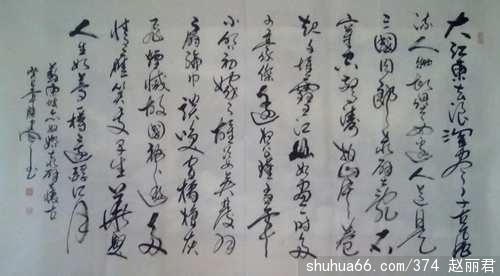 大江東去浪淘盡千古風
流人物故壘西邊人道是
三國周郎赤壁亂石
穿空驚濤拍岸卷
起千堆雪江山如畫一時多
少豪傑遙想公瑾當年
小喬初嫁了雄姿英發羽
扇綸巾談笑間檣櫓灰
飛煙滅故國神遊多
情應笑我早生華髮
人生如夢樽還酹江月
念奴嬌赤壁懷古
書
shuhua66.com/374 赵丽君